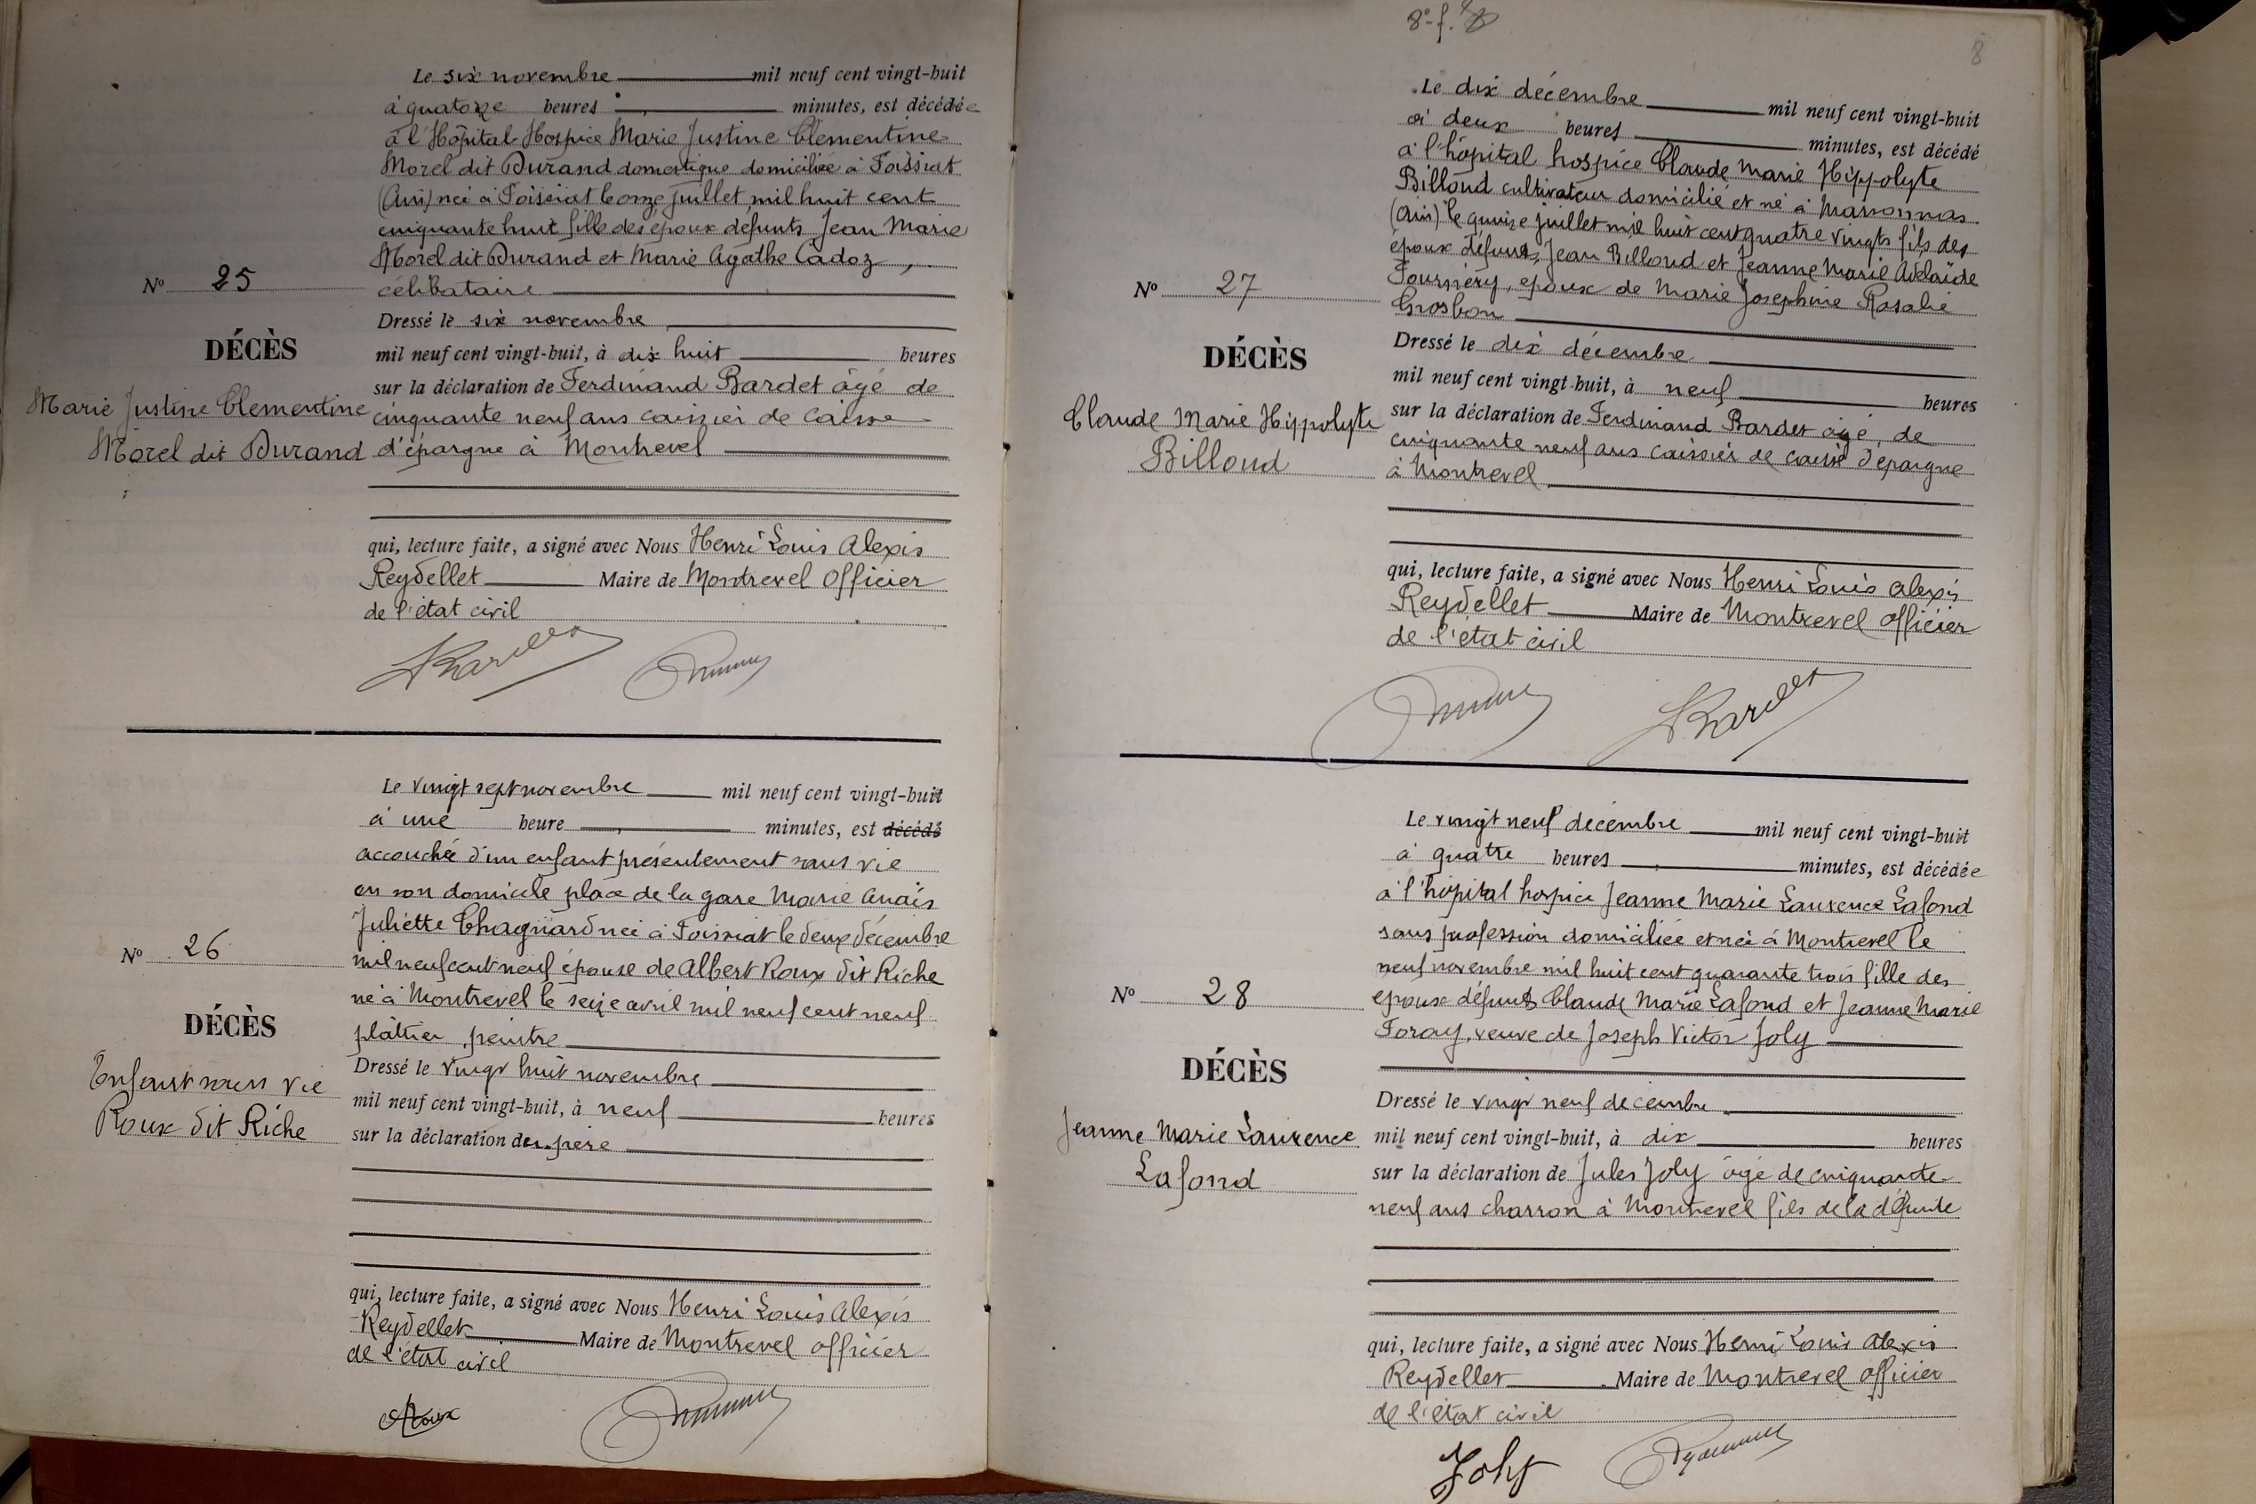 Le six novembre mil neuf cent vingt-huit
à quatorze heures minutes, est décédée
à l'Hôpital Hospice Marie Justine Clementine
Morel dit Durand domestique domiciliée à Foissiat
(Ain) née à Foissiat le onze juillet mil huit cent
cinquante huit fille des époux défunts Jean Marie
Morel dit Durand et Marie Agathe Cadoz,
célibataire
Nº 25
DÉCÈS
Marie Justine Clementine
Morel dit Durand
Dressé le six novembre
mil neuf cent vingt-huit, à dix huit heures
sur la déclaration de Ferdinand Bardet âgé de
cinquante neuf ans caissier de caisse
d'épargne à Montrevel
qui, lecture faite, a signé avec Nous Henri Louis Alexis
Reydellet Maire de Montrevel officier
de l'état civil
Le vingt sept novembre mil neuf cent vingt-huit
à une heure minutes, est décédé
accouchée d'un enfant présentement sans vie
en son domicile place de la gare Marie Anaïs
Juliette Chagnard née à Foissiat le deux décembre
mil neuf cent neuf épouse de Albert Roux dit Riche
né à Montrevel le seize avril mil neuf cent neuf
plâtrier peintre
Nº 26
DÉCÈS
Enfant sans vie
Roux dit Riche
Dressé le vingt huit novembre
mil neuf cent vingt-huit, à neuf heures
sur la déclaration du père
qui, lecture faite, a signé avec Nous Henri Louis Alexis
Reydellet Maire de Montrevel officier
de l'état civil
Roux
8º f.
8
Le dix décembre mil neuf cent vingt-huit
à deux heures minutes, est décédé
à l'hôpital hospice Claude Marie Hippolyte
Billoud cultivateur domicilié et né à Marsonnas
(Ain) le quinze juillet mil huit cent quatre vingts fils des
époux défunts, Jean Billoud et Jeanne Marie Adelaïde
Fournéry, époux de Marie Josephine Rosalie
Grosbon
Nº 27
DÉCÈS
Claude Marie Hippolyte
Billoud
Dressé le dix décembre
mil neuf cent vingt-huit, à neuf heures
sur la déclaration de Ferdinand Bardet âgé, de
cinquante neuf ans caissier de caisse d'épargne
à Montrevel
qui, lecture faite, a signé avec Nous Henri Louis Alexis
Reydellet Maire de Montrevel officier
de l'état civil
Le vingt neuf décembre mil neuf cent vingt-huit
à quatre heures minutes, est décédée
à l'hôpital hospice Jeanne Marie Laurence Lafond
sans profession domiciliée et née à Montrevel le
neuf novembre mil huit cent quarante trois fille des
époux défunts Claude Marie Lafond et Jeanne Marie
Foray, veuve de Joseph Victor Joly
Nº 28
DÉCÈS
Jeanne Marie Laurence
Lafond
Dressé le vingt neuf décembre
mil neuf cent vingt-huit, à dix heures
sur la déclaration de Jules Joly âgé de cinquante
neuf ans charron à Montrevel fils de la défunte
qui, lecture faite, a signé avec Nous Henri Louis Alexis
Reydellet Maire de Montrevel officier
de l'état civil
Joly